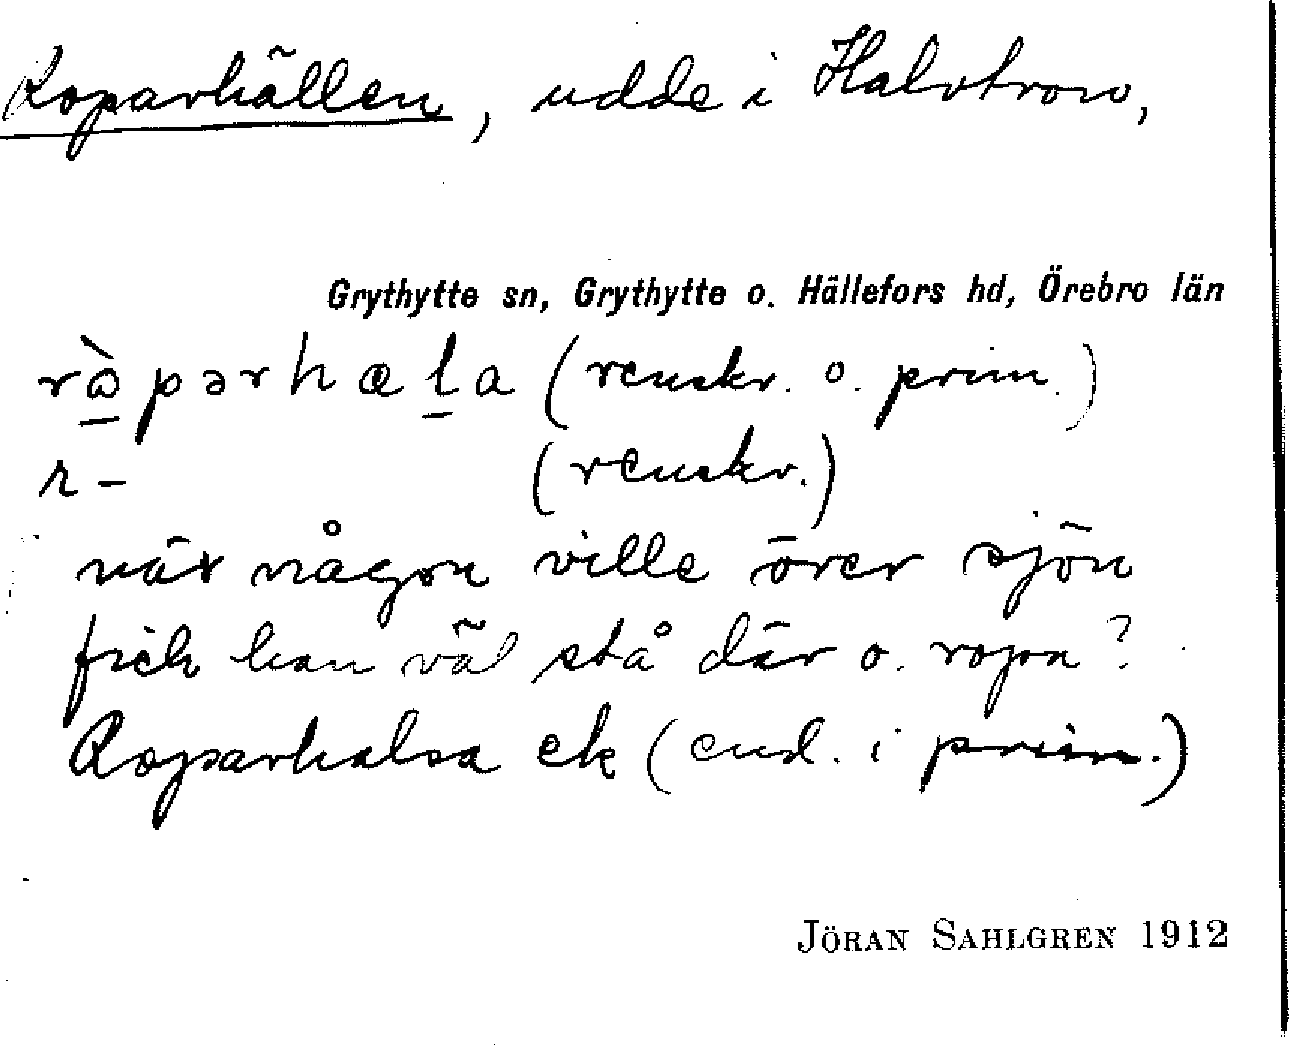 Roparhällen, udde i Halvtron,
Grythytte sn, Grythytte o. Hällefors hd, Örebro län
rò̱pərhæḻa (renskr. o. prim.)
r- (renskr.)
när någon ville över sjön
fick han väl stå där o. ropa?
Roparhalsa ek (end. i prim.)
JÖRAN SAHLGREN 1912